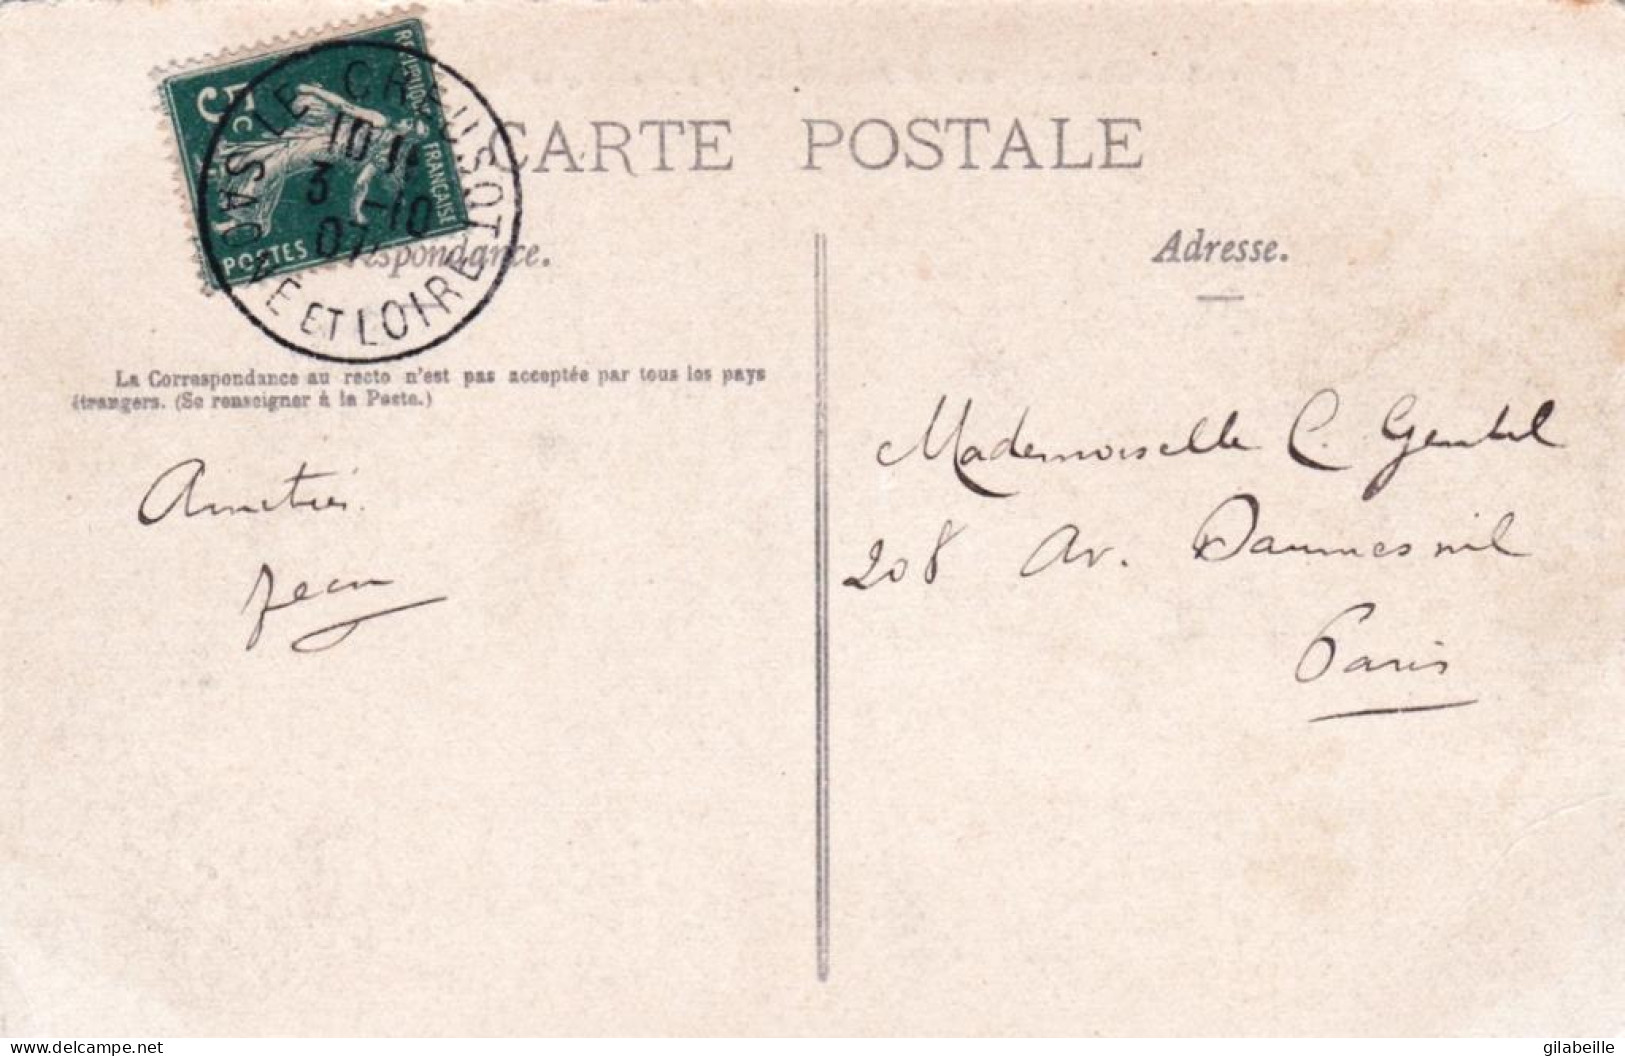 RÉPUBLIQUE FRANÇAISE
5c
POSTES
LE CREUSOT
10 11
3 -10
07
SAONE ET LOIRE
CARTE POSTALE
espondance.
Adresse.
La Correspondance au recto n'est pas acceptée par tous les pays
étrangers. (Se renseigner à la Poste.)
Amitiés.
Jean
Mademoiselle C. Gentil
208 Av. Daumesnil
Paris
delcampe.net
gilabeille